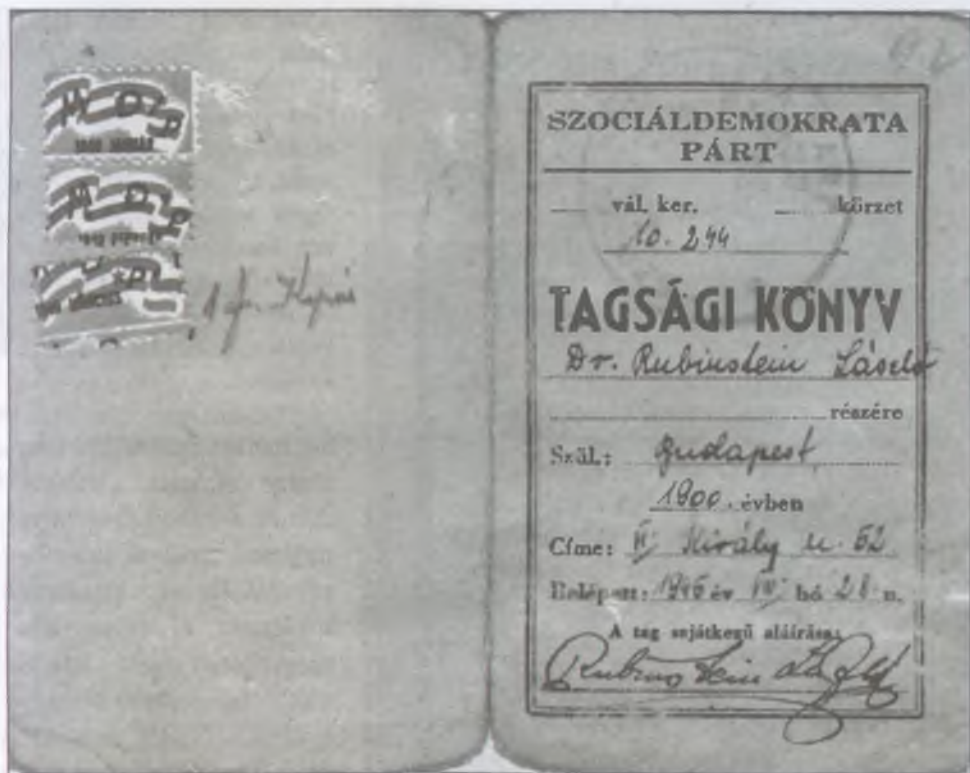 M D P
M D P
SZOCIÁLDEMOKRATA
PÁRT
vál. ker. körzet
10. 244
TAGSÁGI KÖNYV
Dr. Rubinstein László
részére
Szül.: Budapest
1900. évben
Címe: VI. Király u. 52
Belépett: 1945 év hó 28 n.
A tag sajátkezű aláírása:
Rubinstein László